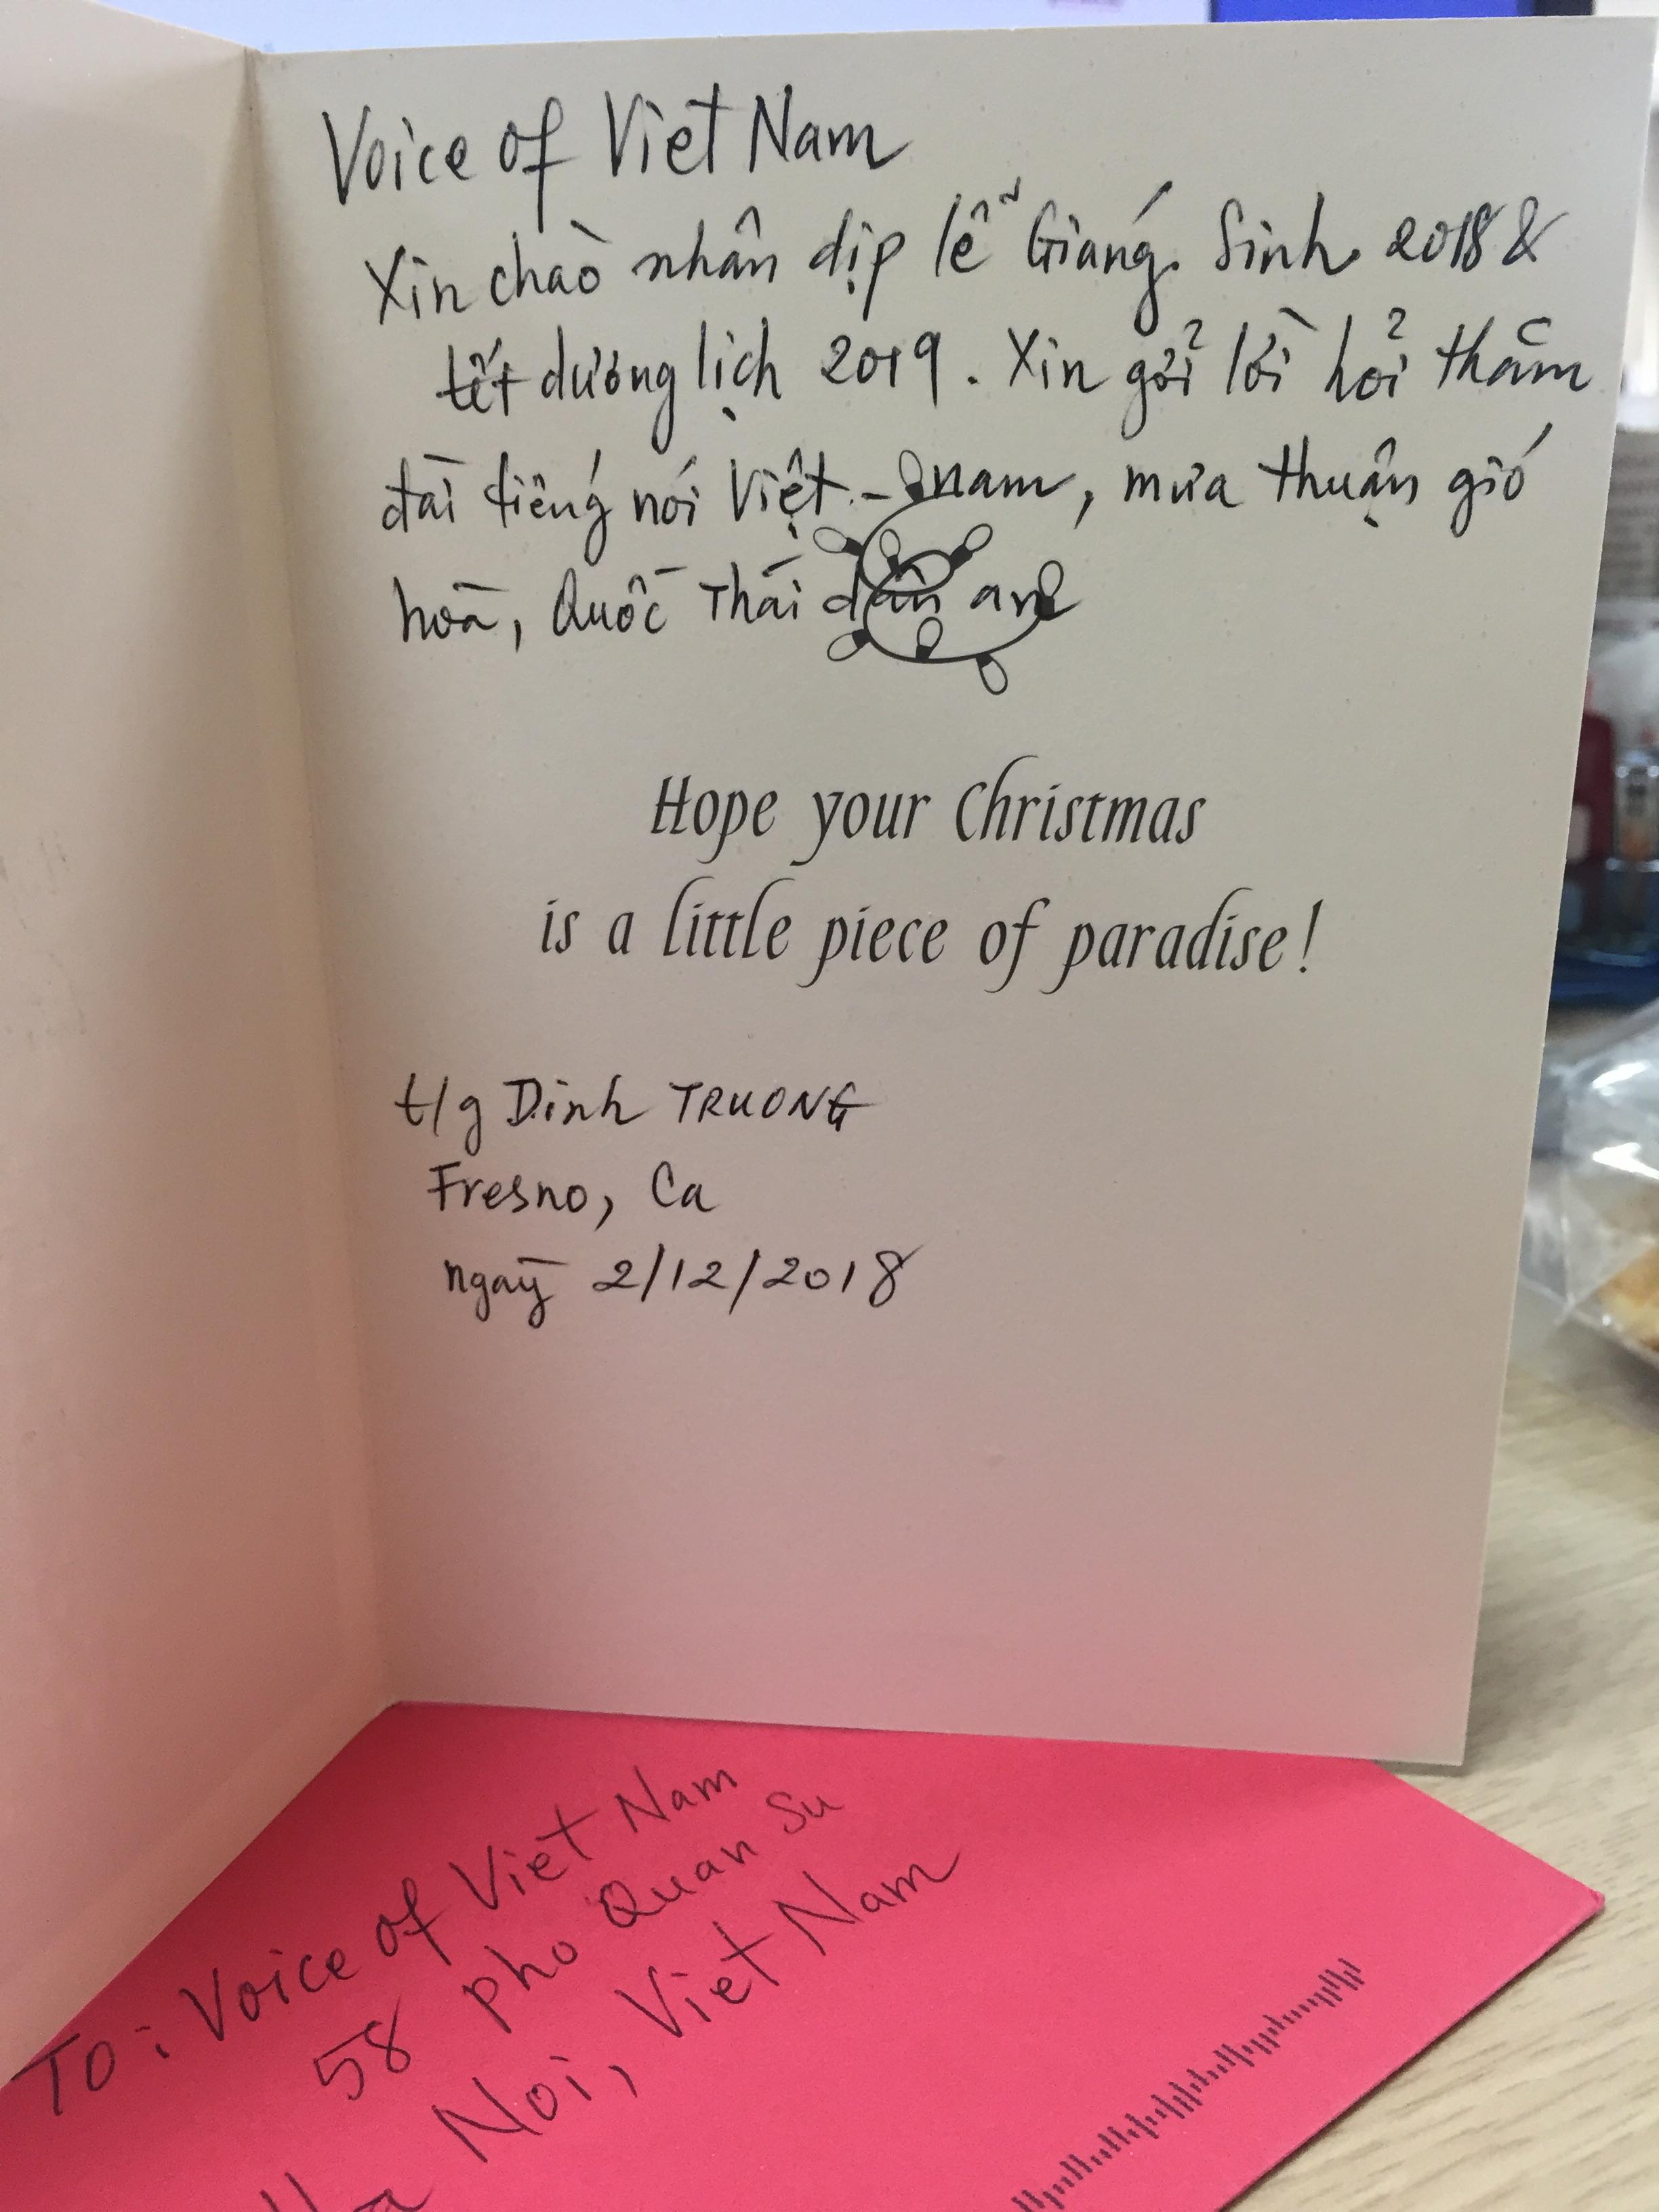 Voice of Việt Nam
Xin chào nhân dịp lễ Giáng Sinh 2018 &
tết dương lịch 2019. Xin gởi lời hỏi thăm
đài tiếng nói Việt-nam, mưa thuận gió
hoà, Quốc Thái dân an
Hope your Christmas
is a little piece of paradise!
t/g Dinh TRUONG
Fresno, Ca
ngày 2/12/2018
To: Voice of Viet Nam
58 pho Quan Su
Ha Noi, Viet Nam